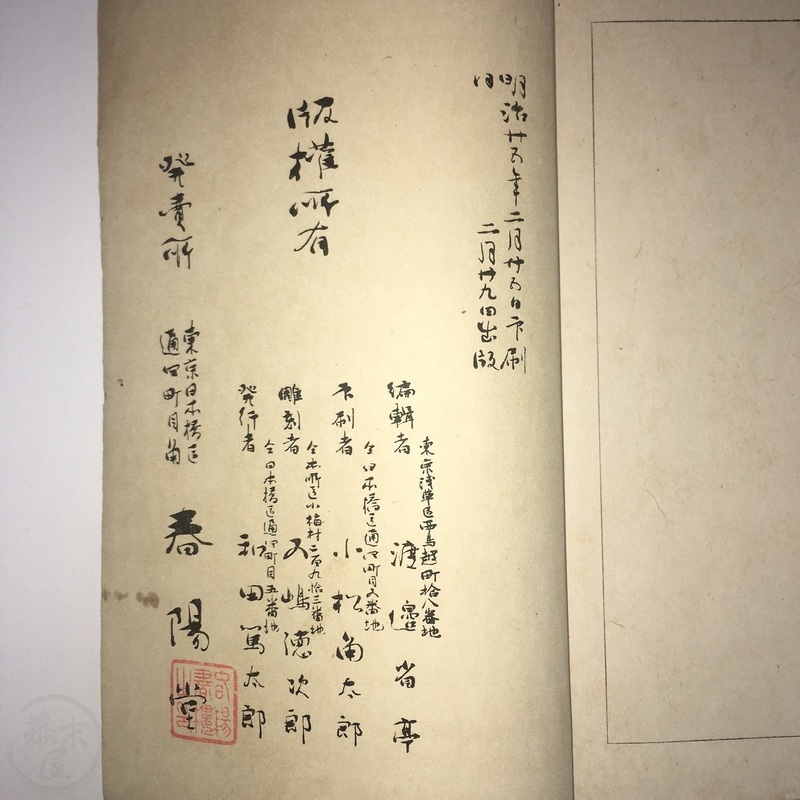 明治廿五年二月廿五日印刷
同 二月廿九日出版
版權所有
東京浅草区西鳥越町拾八番地
編輯者 渡邉省亭
仝日本橋区通四町目五番地
印刷者 小松角太郎
仝本所区小梅村二百九拾三番地
雕刻者 五嶋徳次郎
仝日本橋区通四町目五番地
発行者 和田篤太郎
発賣所
東京日本橋区
通四町目角
春陽堂